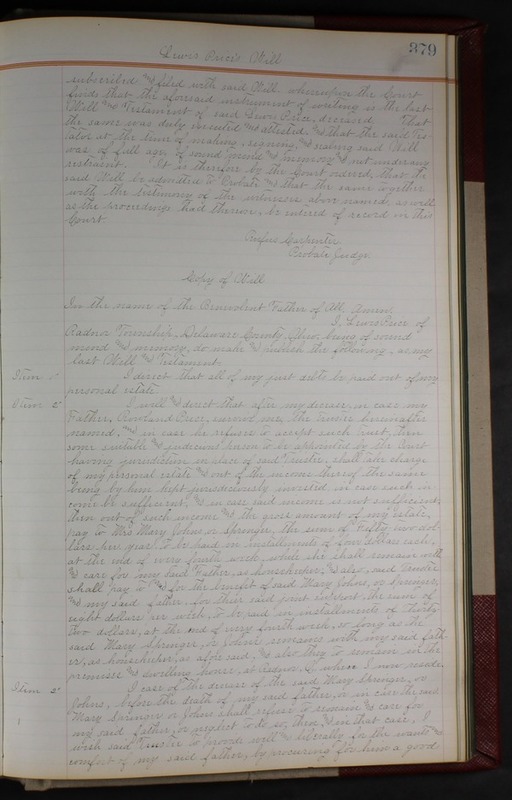 Lewis Price's Will
379
subscribed and filed with said Will. whereupon the Court
finds that the aforesaid instrument of writing is the last
Will and Testament of said Lewis Price, deceased. That
the same was duly executed and attested, and that the said Tes-
tator at the time of making, signing, and making said Will
was of full age, of sound mind and memory and not under any
restraint. It is therefore by the Court ordered, that the
said Will be admitted to Probate and that the same together
with the testimony of the witnesses above named, as well
as the proceedings had thereon, be entered of record in this
Court.
Rufus Carpenter
Probate Judge.
Copy of Will
In the name of the Benevolent Father of All, Amen.
I, Lewis Price of
Radnor Township, Delaware County, Ohio, being of sound
mind and memory, do make and publish the following, as my
last Will and Testament.
Item 1 I direct that all of my just debts be paid out of my
personal estate
Item 2 I will and direct that after my decease, in case my
Father, Rowland Price, survive me, the Trustee hereinafter
named, and in case he refuse to accept such trust, then
some suitable and judicious person to be appointed by the Court
having jurisdiction in place of said Trustee, shall take charge
of my personal estate and out of the income thereof the same
being by him kept judiciously invested, in case such in-
come be sufficient, and in case said income is not sufficient,
then out of such income and the gross amount of my estate,
pay to Mrs. Mary Johns or Springer, the sum of Fifty two dol-
lars per year, to be paid in installments of four dollars each,
at the end of every fourth week, while she shall remain with
and care for my said Father, as housekeeper, and also, said Trustee
shall pay to and for the benefit of said Mary Johns, or Springer,
and my said father, for their said joint support, the sum of
eight dollars per week, to be paid in installments of Thirty
two dollars, at the end of every fourth week, so long as the
said Mary Springer, or Johns remains with my said fath-
er, as housekeeper, as aforesaid, and also they to remain in the
premises and dwelling house, at Radnor, O. where I now reside.
Item 3 I case of the decease of the said Mary Springer, or
Johns, before the death of my said father, or in case the said
Mary Springer or Johns shall refuse to remain and care for
my said father, or neglect to do so, then and in that case, I
wish said Trustee to provide well and liberally for the wants and
comfort of my said father, by procuring for him a good